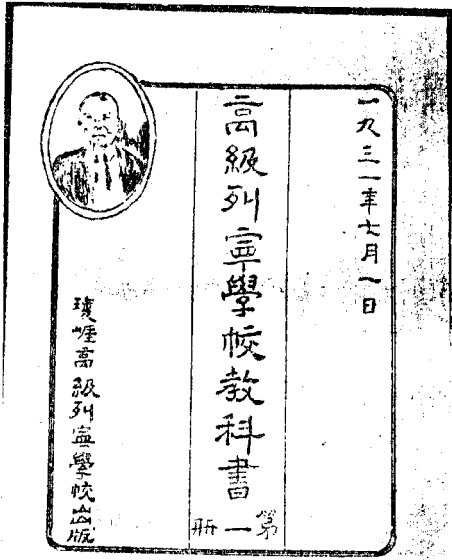 一九三一年七月一日
高級列寧學校教科書
第一冊
瓊崖高級列寧學校出版